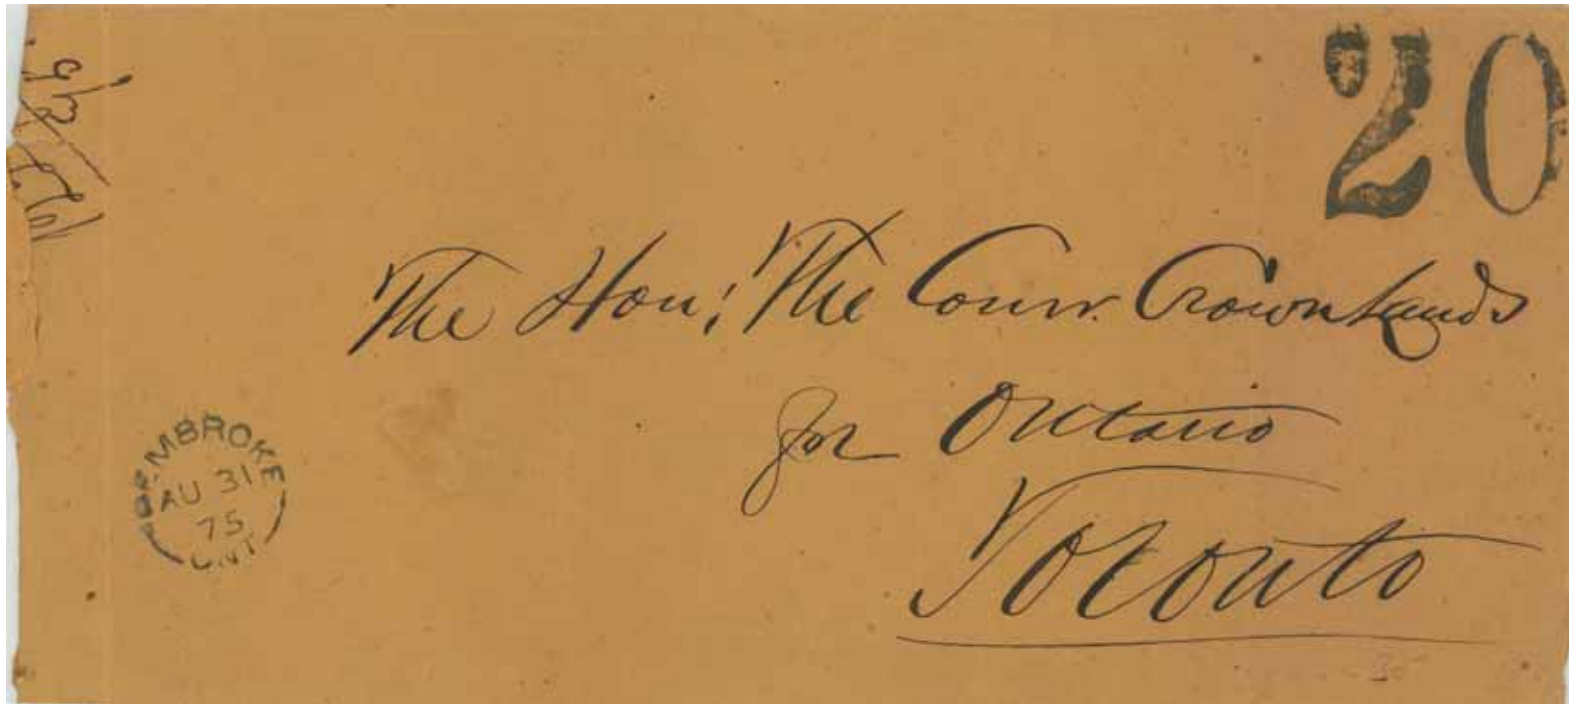 20
The Hon: The Comr. Crown Lands
for Ontario
Toronto
PEMBROKE
AU 31
75
ONT
30